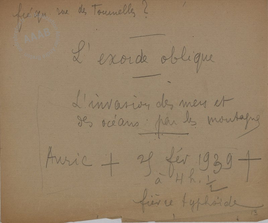 rue des Tournelles ?
L'exorde oblique
L'invasion des mers et
des océans par les montagnes
Auric + 25 fév 1939 +
à 4h ½
fièvre typhoïde